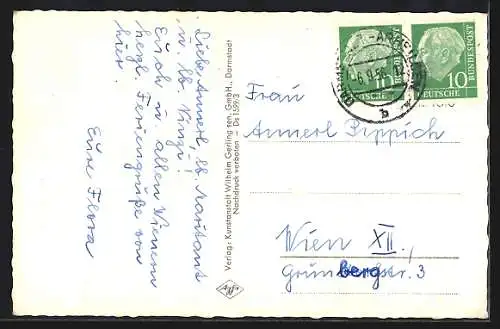 Liebe Annerl, lb. Maritant
u. lb. Vinzi!
Euch u. allen Wienern
herzl. Feriengrüße von
hier.
Eure Flora
Verlag: Kunstanstalt Wilhelm Gerling sen. GmbH., Darmstadt
Nachdruck verboten – Ds 1599/3
10
DEUTSCHE
BUNDESPOST
10
DEUTSCHE
BUNDESPOST
b
Frau
Annerl Pippich
Wien XII.,
Grünbergstr. 3